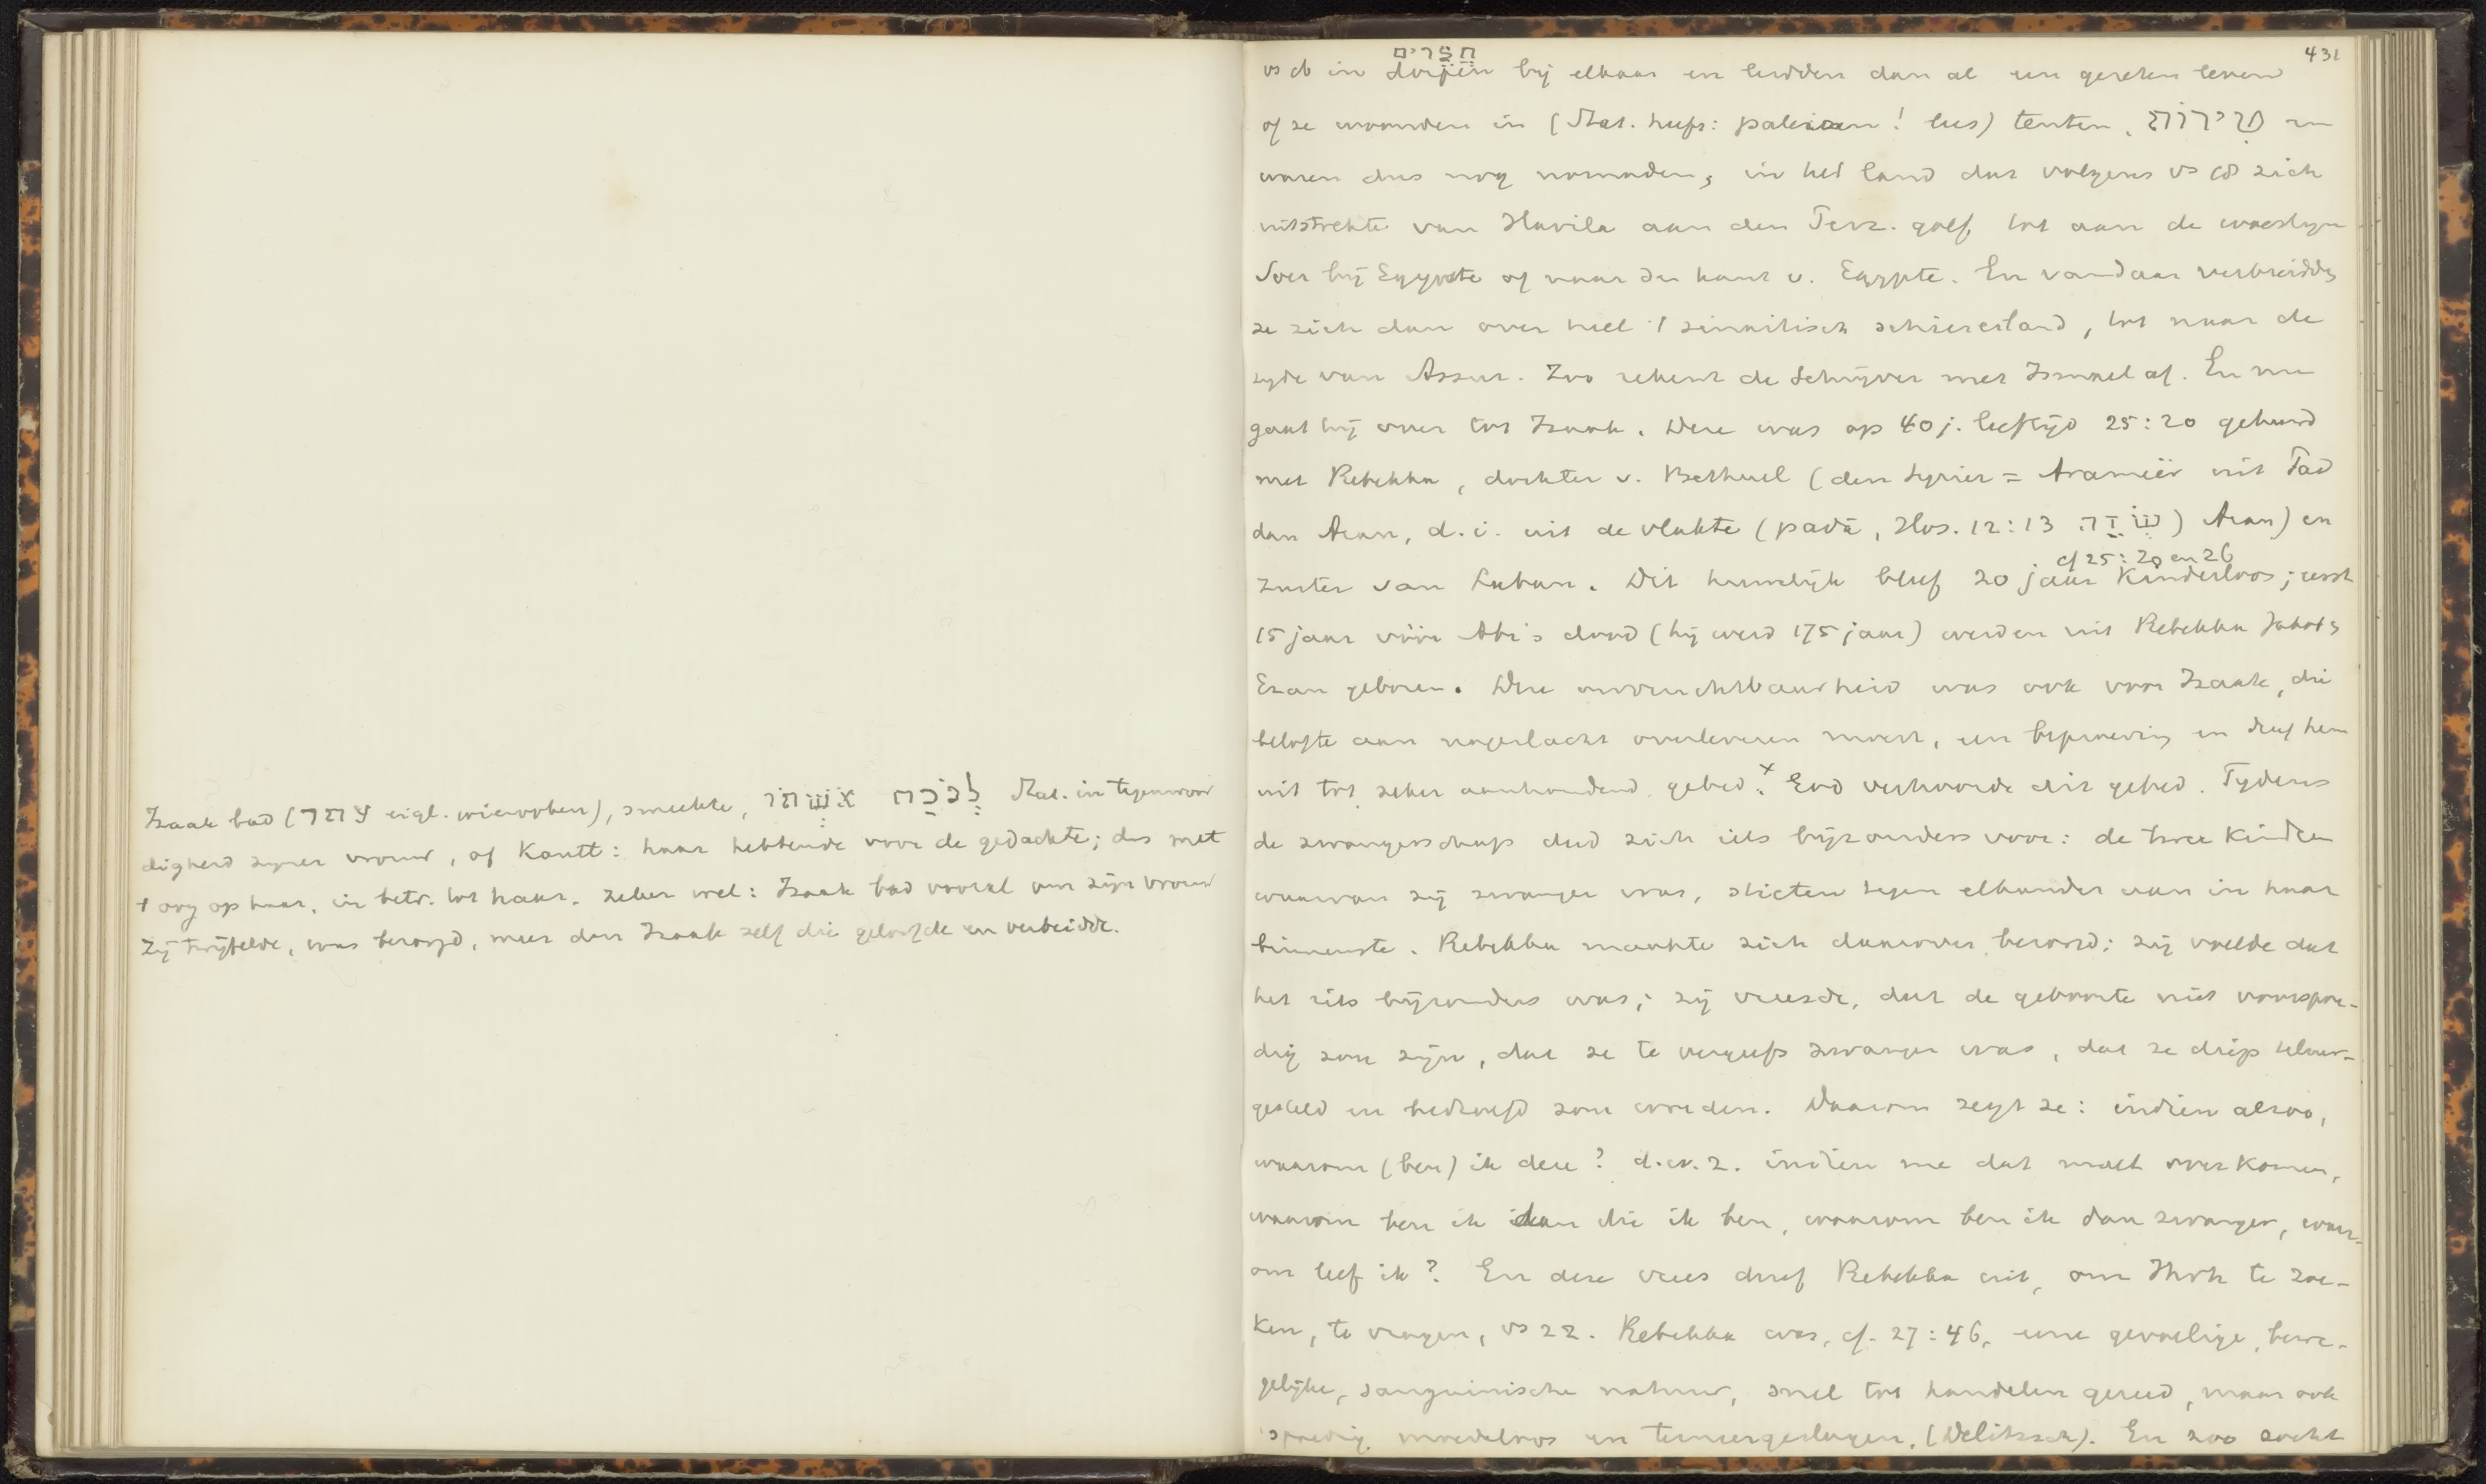 Izaak bad (עתר eigl. wierooken), smeekte, לנכח אשתו Stat. in tegenwoor
digheid zijner vrouw, of Kautt: haar hebbende voor de gedachte; dus met
't oog op haar, in betr. tot haar. Zeker wel: Izaak bad vooral om zijn vrouw
Zij twijfelde, was bezorgd, meer dan Izaak zelf die geloofde en verbeidde.
431
חצרים
vs in dorpen bij elkaar en leidden dan al een gezeten leven
of ze woonden in (Stat. hufs: paleizen! lees) tenten, טירות en
waren dus nog nomaden, in het land dat volgens vs 18 zich
uitstrekte van Havila aan den Perz. golf tot aan de woestijn
Soer bij Egypte of naar den kant v. Egypte. En vandaar verbreidden
ze zich dan over heel 't sinaitisch schiereiland, tot naar de
zijde van Assur. Zoo rekent de Schrijver met Ismael af. En nu
gaat hij over tot Izaak. Deze was op 40 j. leeftijd 25:20 gehuwd
met Rebekka, dochter v. Bethuel (den Syrier = Arameër uit Pad
dan Aram, d.i. uit de vlakte (pada, Hos. 12:13 שדה) Aram) en
cf 25:20 en 26
zuster van Laban. Dit huwelijk bleef 20 jaar Kinderloos; eerst
15 jaar vóór Abr's dood (hij werd 175 jaar) werden uit Rebekka Jakob &
Ezau geboren. Deze onvruchtbaarheid was ook voor Izaak, die
belofte aan nageslacht overleveren moest, een beproeving en dreef hem
uit tot zeker aanhoudend gebed.x God verhoorde dit gebed. Tijdens
de zwangerschap deed zich iets bijzonders voor: de twee Kindren
waarvan zij zwanger was, stieten tegen elkander aan in haar
binnenste. Rebekka maakte zich daarover bezorgd; zij voelde dat
het iets bijzonders was; zij vreesde, dat de geboorte niet voorspoe-
dig zou zijn, dat ze te vergeefs zwanger was, dat ze diep teleur-
gesteld en bedroefd zou worden. Daarom zegt ze: indien alzoo,
waarom (ben) ik deze? d.w.z. indien me dat moet over Komen,
waarom ben ik dan die ik ben, waarom ben ik dan zwanger, waar-
om leef ik? En deze vrees dreef Rebekka uit, om Jhvh te zoe-
Ken, te vragen, vs 22. Rebekka was, cf. 27:46, eene gevoelige, bewe-
gelijke, sanguinische natuur, snel tot handelen gereed, maar ook
spoedig moedeloos en terneergeslagen. (Delitzsch). En zoo zocht